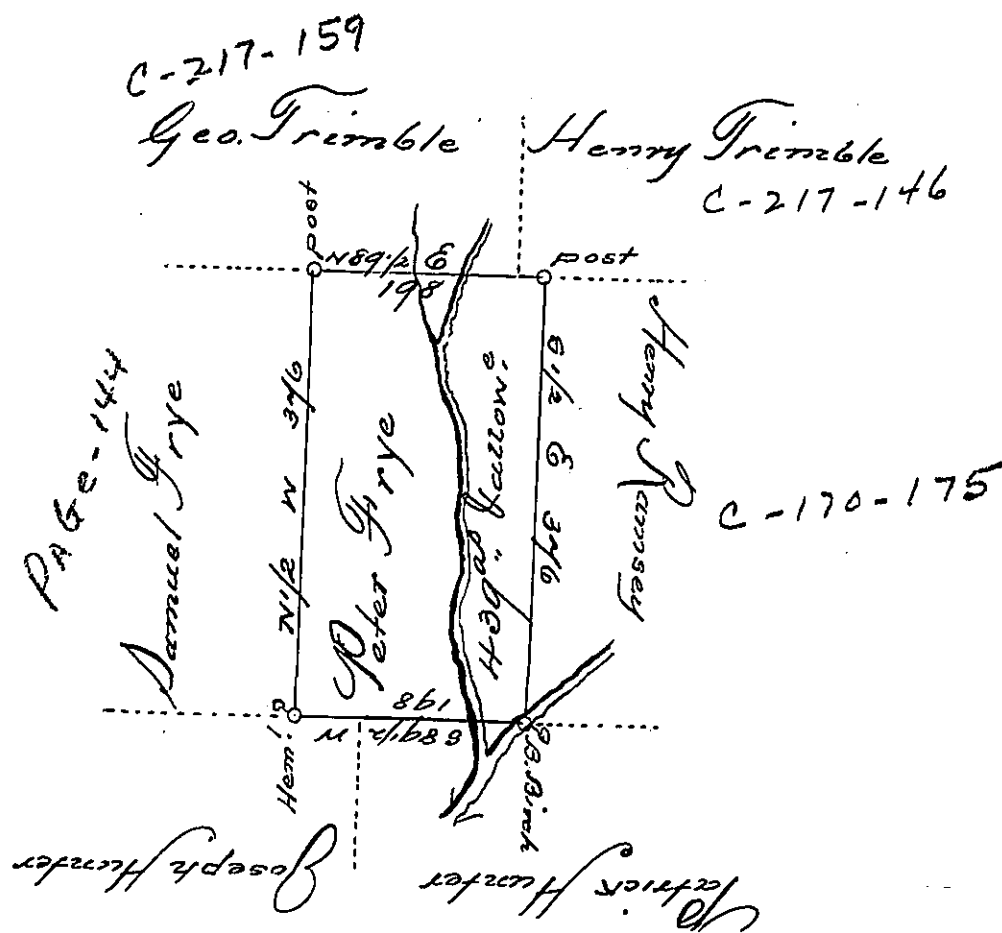 C-217-159
Geo. Trimble
Henry Trimble
C-217-146
post
post
N89 1/2 E
198
PAGe-144
Samuel Frye
N 1/2 W 376
Peter Frye
S 1/2 E 376
Henry Rumsey
C-170-175
198
S89 1/2 W
Hem
B. Birch
Joseph Hunter
Patrick Hunter